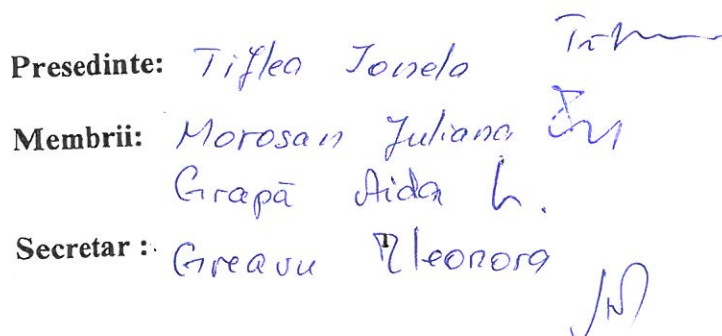 Presedinte: Tiflea Ionela
Membrii: Morosan Juliana
Grapă Aida
Secretar : Greavu Eleonora